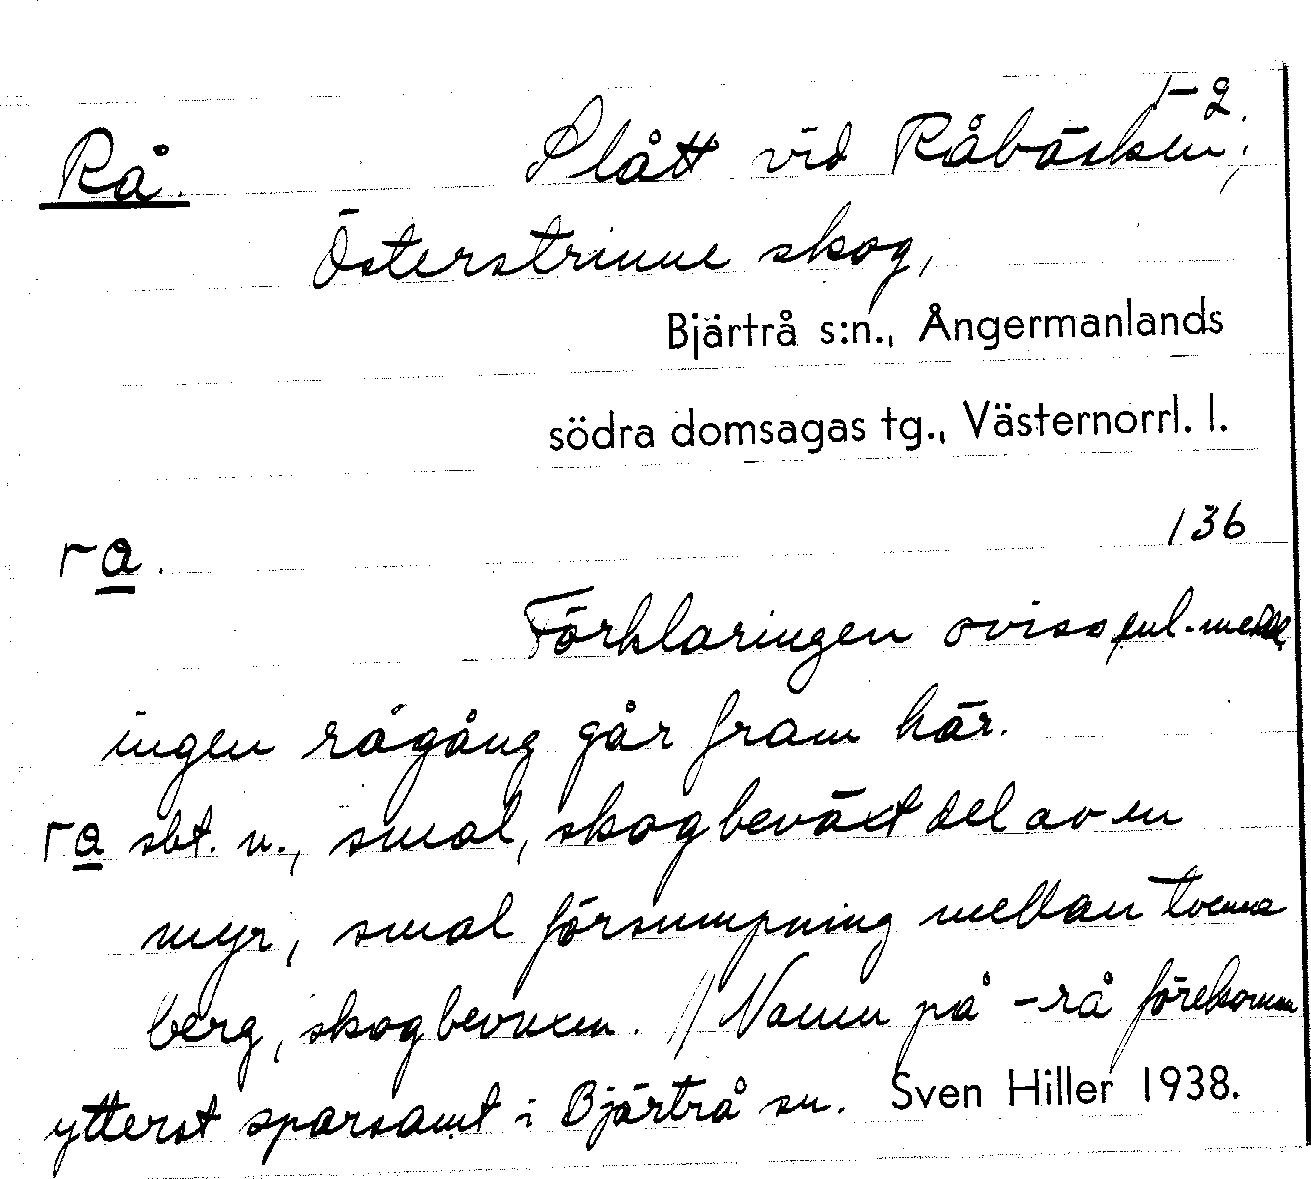 1-2.
Rå. Slått vid Råbäcken;
Österstrinne skog,
Bjärtrå s:n., Ångermanlands
södra domsagas tg., Västernorrl. l.
136
ra.
Förklaringen oviss enl. medd.
ingen rågång går fram här.
ra sbt. n., smal, skogbeväxt del av en
myr, smal försumpning mellan tvenne
berg, skogbevuxen. // Namn på -rå förekomm
ytterst sparsamt i Bjärtrå sn. Sven Hiller 1938.